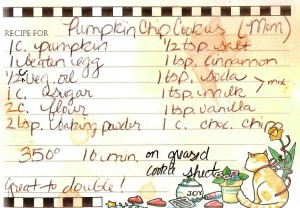 RECIPE FOR Pumpkin Chip Cookies (Mom)
1 c. pumpkin 1/2 tsp. salt
1 beaten egg 1 tsp. cinnamon
1/2 c. veg. oil 1 tsp. soda
1 c. sugar 1 tsp. milk > mix
2 c. flour 1 tsp. vanilla
2 tsp. baking powder 1 c. choc. chips
350° 10 min. on greased
cookie sheet
Great to double!
JOY